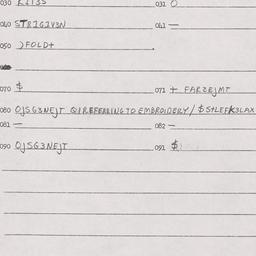 030 031 O
040 STRIGIV3N 041 —
050 )FOLD+
070 $ 071 + FARZEJMT
080 OJSG3NEJT Q/REFERRING TO EMBROIDERY/
081 — 082 —
090 OJSG3NEJT 091 $